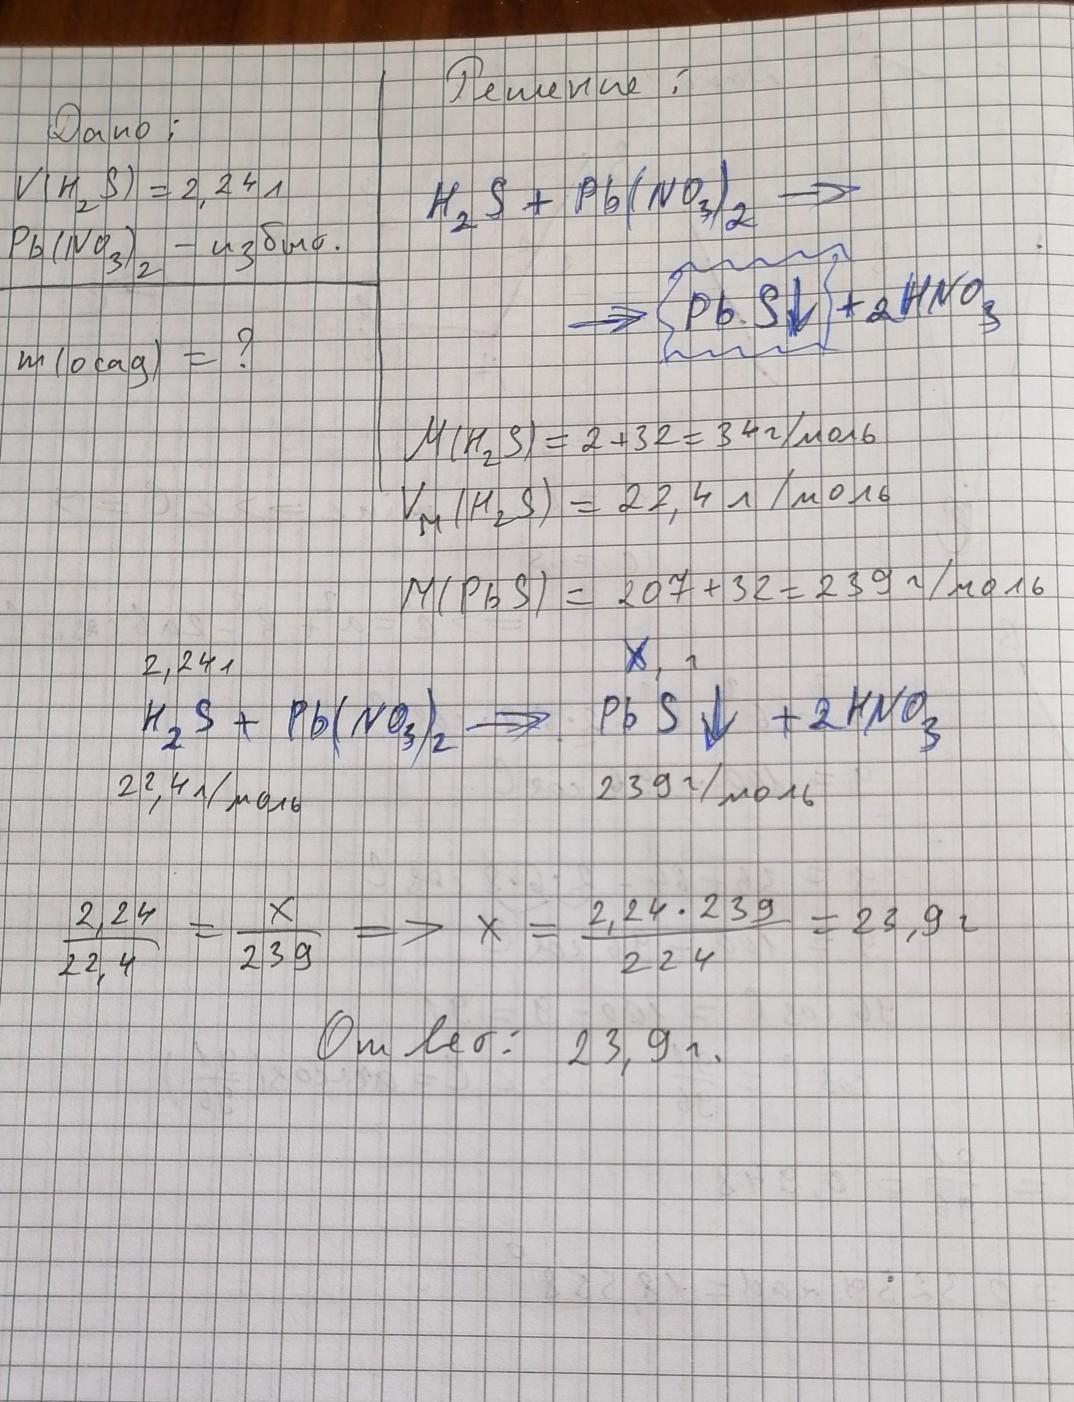 Решение:
Дано:
V(H₂S) = 2,24 л
Pb(NO₃)₂ - избыт.
m(осад) = ?
H₂S + Pb(NO₃)₂ →
→ PbS↓ + 2HNO₃
M(H₂S) = 2 + 32 = 34 г/моль
Vₘ(H₂S) = 22,4 л/моль
M(PbS) = 207 + 32 = 239 г/моль
2,24 л x, г
H₂S + Pb(NO₃)₂ → PbS↓ + 2HNO₃
22,4 л/моль 239 г/моль
2,24/22,4 = x/239 => x = 2,24·239/224 = 23,9 г
Ответ: 23,9 г.